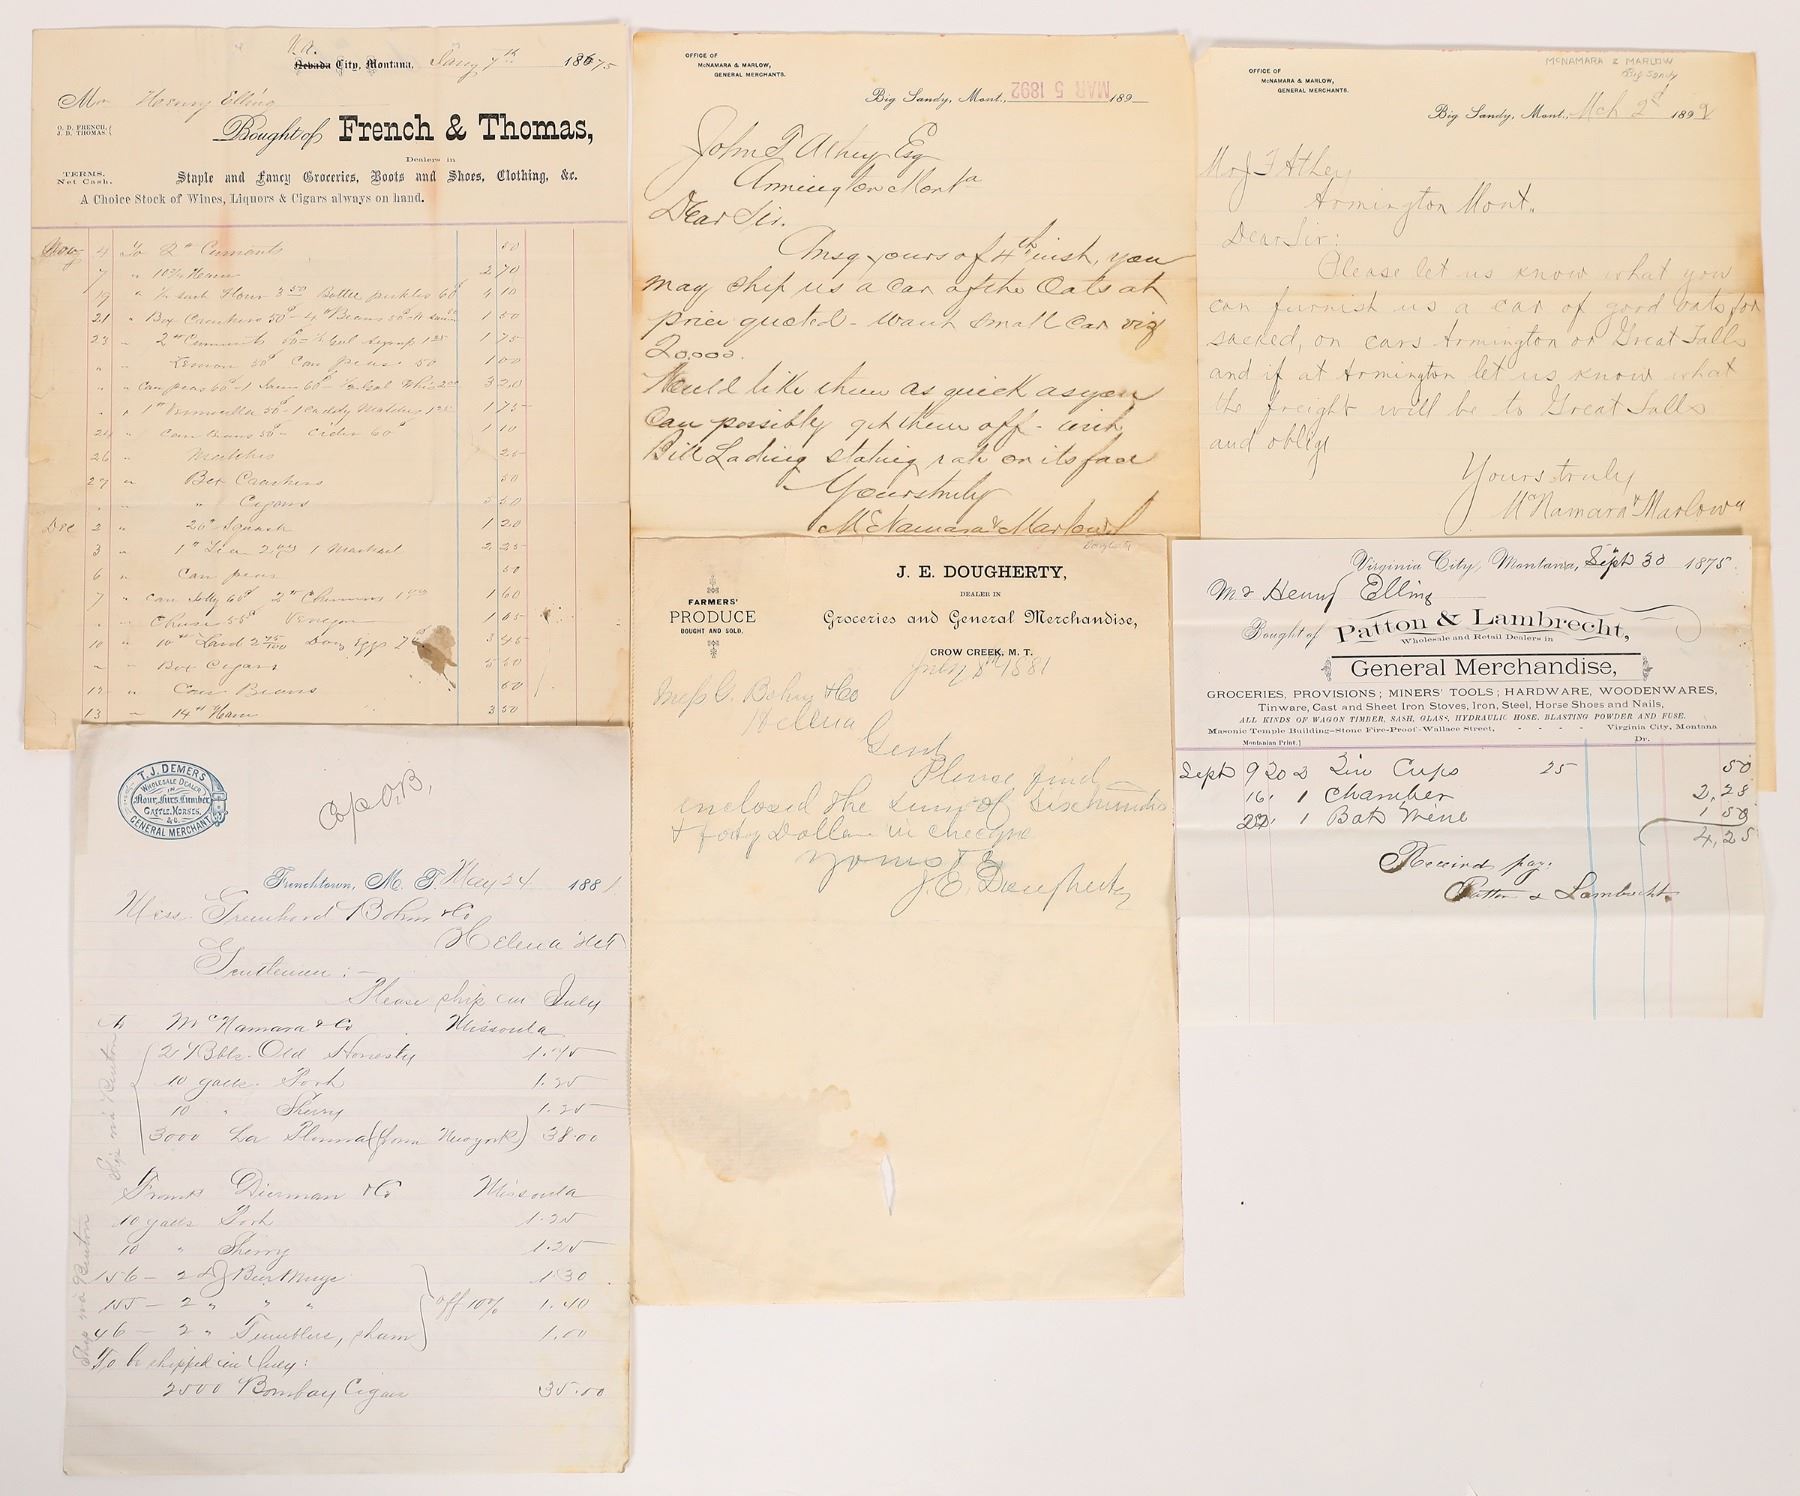 Va.
Nevada City, Montana, Jany 7th 1875
Mr Henry Elling
O. D. FRENCH,
J. D. THOMAS.
Bought of French & Thomas,
Dealers in
TERMS.
Net Cash.
Staple and Fancy Groceries, Boots and Shoes, Clothing, &c.
A Choice Stock of Wines, Liquors & Cigars always on hand.
4 To 2 # Currants 50
7 " Ham 2 70
19 " ½ sack Flour 3 50 Bottle pickles 60 4 10
21 " Box Crackers 50 - 4 # Beans 50 1 50
23 " 2 # Currants 50 - Syrup 1 25 1 75
" " Lemon 50 Can peas 50 1 00
" " Can peas 60 3 20
" " 1 # Vermicella 50 - 1 Caddy Matches 1 25 1 75
24 " Can Beans 50 - Cider 60 1 10
26 " Matches 25
27 " Box Crackers 50
" " " Cigars 5 50
Dec 2 " 20 # Squash 1 20
3 " 1 # Tea 1 Mackael 2 25
6 " Can peas 50
7 " Can Jelly 60 2 # 1 60
" " Cheese 55 Vinegar 1 05
10 " 10 # Lard 2 Doz Eggs 3 45
" " Box Cigars 5 50
12 " Can Beans 60
13 " 14 # Ham 3 50
OFFICE OF
McNAMARA & MARLOW,
GENERAL MERCHANTS.
Big Sandy, Mont., MAR 5 1892 189
John T Athey Esq
Armington Monta
Dear Sir.
Ansg yours of 4th inst, you
may ship us a car of the Oats at
price quoted - want small car viz
20.000.
Would like them as quick as you
can possibly get them off - with
Bill Lading stating rate on its face
Yours truly
McNamara & Marlow
McNAMARA & MARLOW
Big Sandy
OFFICE OF
McNAMARA & MARLOW,
GENERAL MERCHANTS.
Big Sandy, Mont., Mch 2d 1892
Mr J T Athey
Armington Mont.
Dear Sir:
Please let us know what you
can furnish us a car of good oats for
sacked, on cars Armington or Great Falls
and if at Armington let us know what
the freight will be to Great Falls
and oblige
Yours truly
McNamara & Marlow
Dougherty
FARMERS'
PRODUCE
BOUGHT AND SOLD.
J. E. DOUGHERTY,
DEALER IN
Groceries and General Merchandise,
CROW CREEK, M. T.
8th 1881
Mess G. Bohm & Co
Hellena
Gent
Please find
enclosed the sum of Six hundred
& forty Dollars in cheque
yours
J. E. Dougherty
Virginia City, Montana, Sept 30 1875
Mr Henry Elling
Bought of Patton & Lambrecht,
Wholesale and Retail Dealers in
General Merchandise,
GROCERIES, PROVISIONS; MINERS' TOOLS; HARDWARE, WOODENWARES,
Tinware, Cast and Sheet Iron Stoves, Iron, Steel, Horse Shoes and Nails,
ALL KINDS OF WAGON TIMBER, SASH, GLASS, HYDRAULIC HOSE, BLASTING POWDER AND FUSE.
Masonic Temple Building-Stone Fire-Proof-Wallace Street, - - - - Virginia City, Montana
Montanian Print.] Dr.
Sept 2 Tin Cups 25 50
16 1 Chamber 2,25
22 1 1 50
4,25
Received pay.
Patton & Lambrecht
T. J. DEMERS
WHOLESALE DEALER
IN
Flour, Furs, Lumber,
CATTLE, HORSES,
&C.
GENERAL MERCHANT
Frenchtown, M. T. May 24 1881
Mess. Greenhood Bohm & Co
Helena
Gentlemen:-
Please ship in July
To McNamara & Co Missoula
2 Bbls. Old Honesty 1.45
10 galls. Port 1.25
10 " Sherry 1.25
3000 La Paloma (from New york) 38.00
Frank Dierman & Co Missoula
10 galls Port 1.25
10 " Sherry 1.25
156 - 2 Beer Mugs 1 30
155 - 2 " " " off 10% 1.40
46 - 2 " Tumblers, sham 1.00
To be shipped in July:
2500 Bombay Cigars 35.00
Ship via Benton
Ship via Benton